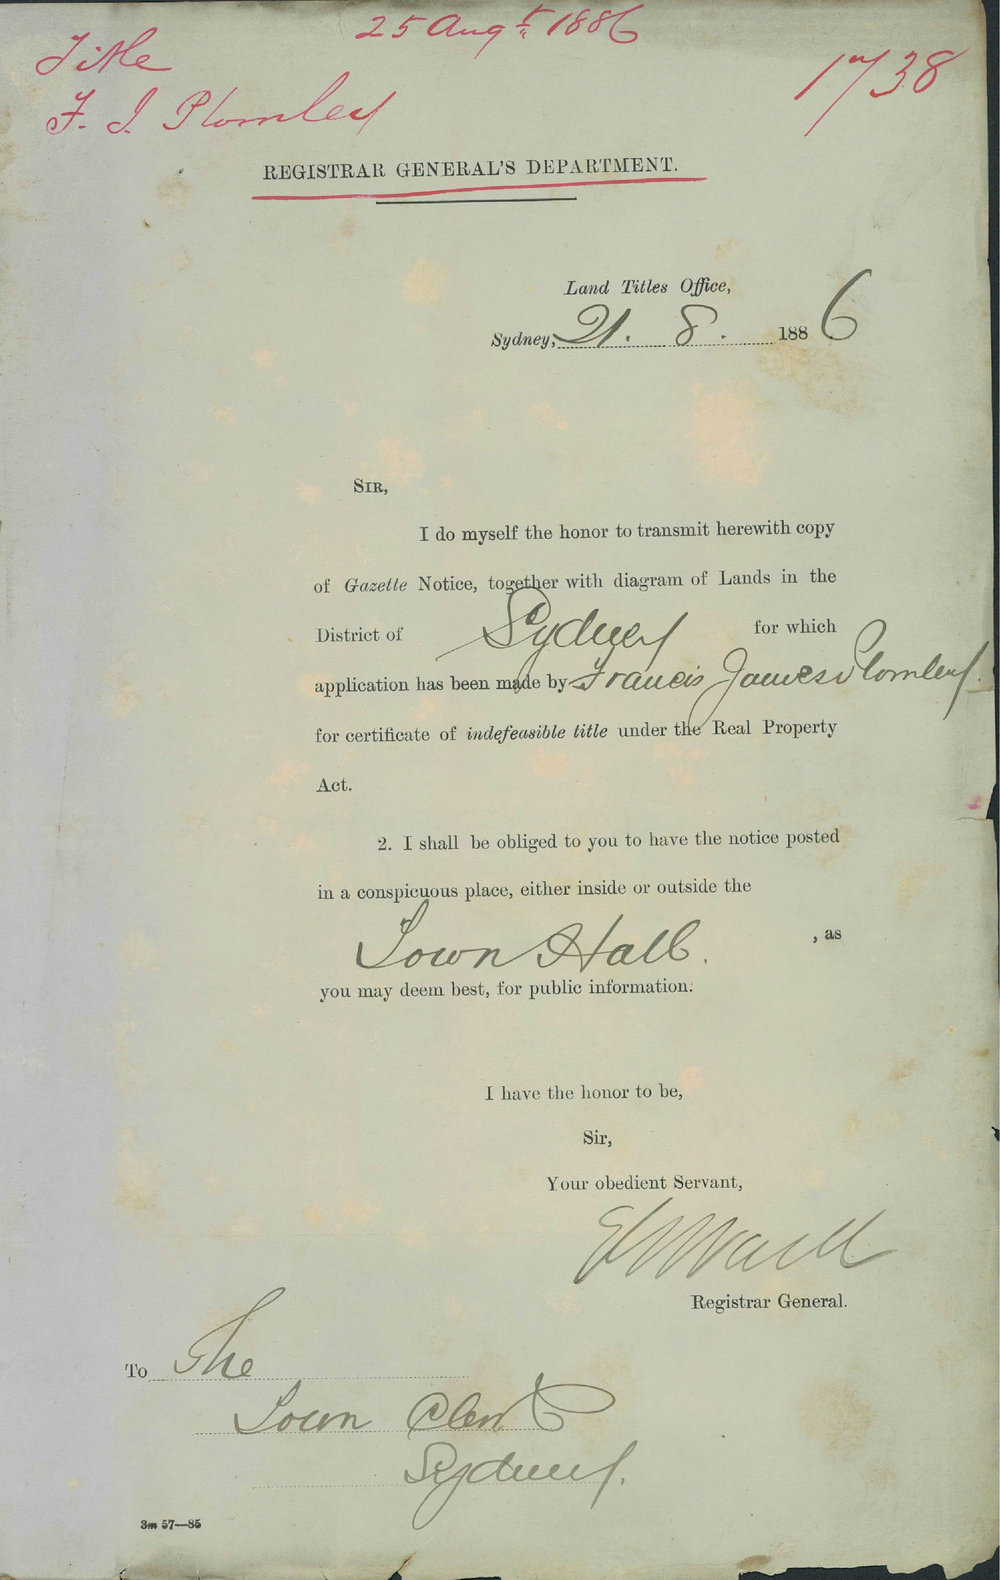 25 Augt 1886
Title
1738
F. J. Plomley
REGISTRAR GENERAL'S DEPARTMENT.
Land Titles Office,
Sydney, 21. 8. 1886
SIR,
I do myself the honor to transmit herewith copy
of Gazette Notice, together with diagram of Lands in the
District of Sydney for which
application has been made by Francis James Plomley
for certificate of indefeasible title under the Real Property
Act.
2. I shall be obliged to you to have the notice posted
in a conspicuous place, either inside or outside the
Town Hall. , as
you may deem best, for public information.
I have the honor to be,
Sir,
Your obedient Servant,
Registrar General.
To The
Town Clerk
Sydney.
3m 57—85